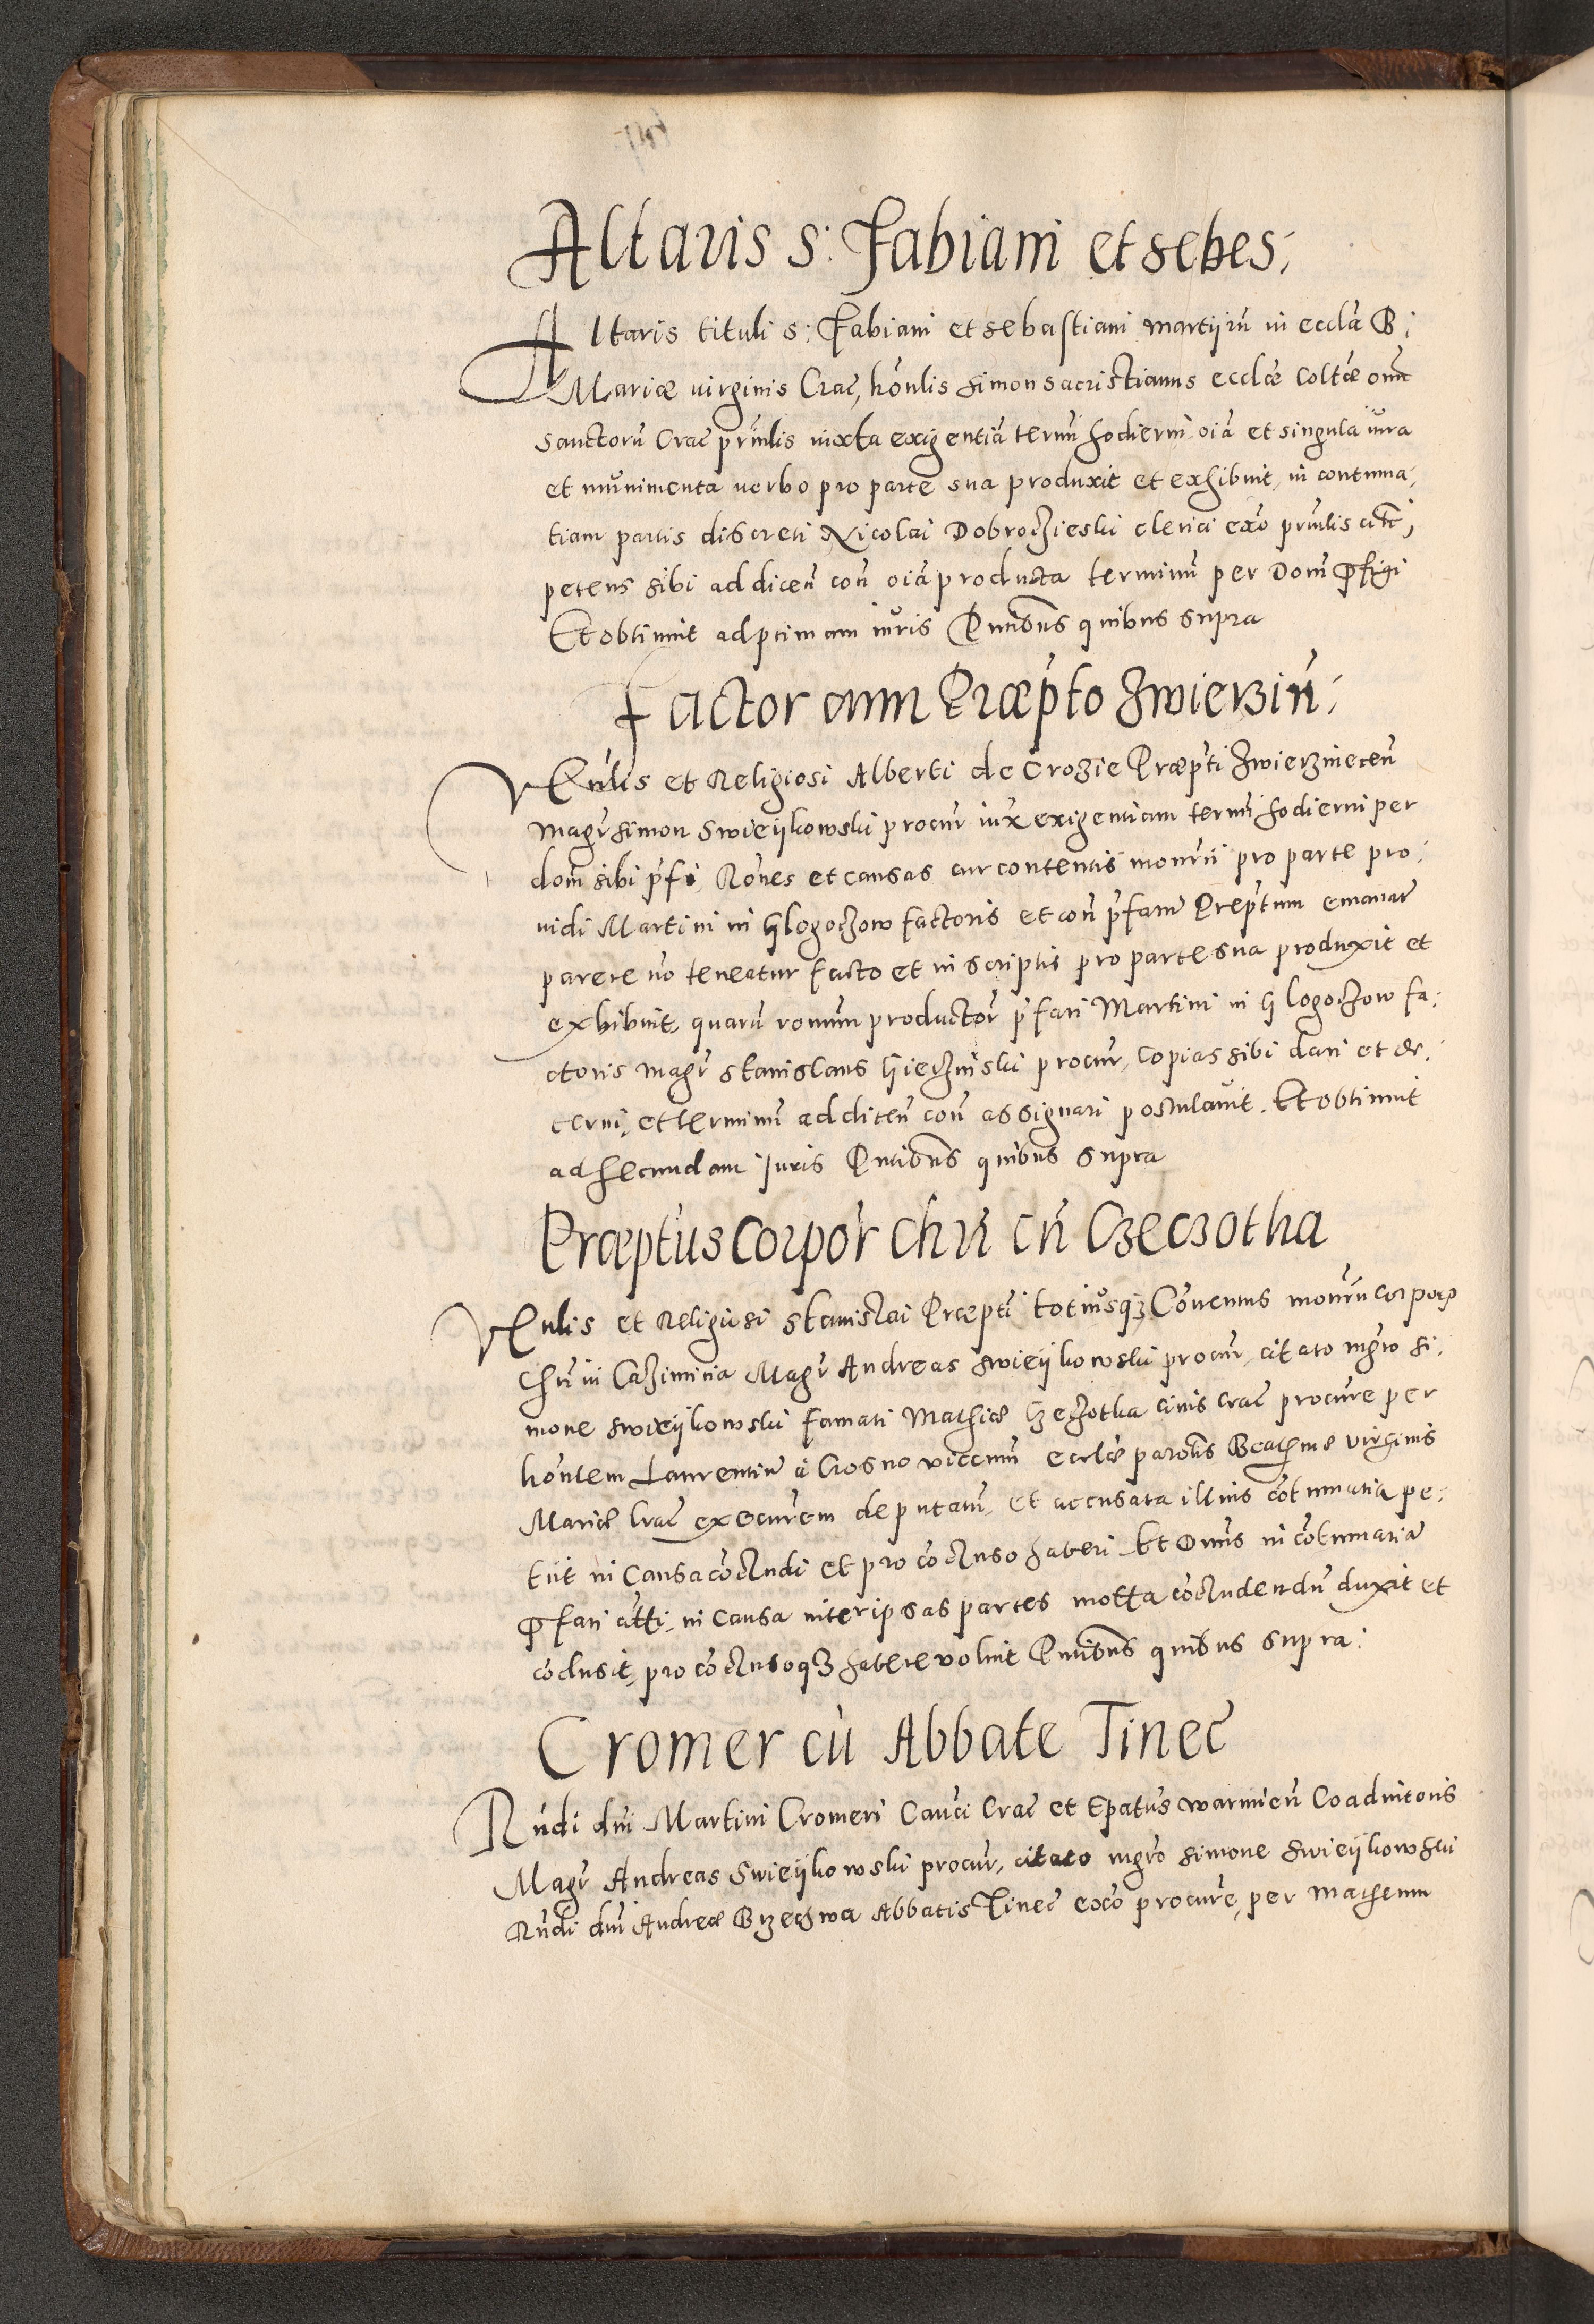 Altaris s: Fabiani et sebes:
Altaris tituli s: Fabiani et sebastiani martijrū in ecclā B:
Mariæ virginis Crac̄, hōnlis simon sacristianus ecclǣ coltǣ om̄
sanctorū Crac̄ prn̄lis iuxta exigentiā termī hodierni oīa et singula iura
et mŭnimenta verbo pro parte sua produxit et exhibuit, in contuma:
tiam partis discreti Nicolai Dobroczieski clerici exō prn̄lis citt̄j
petens sibi ad dicen̄ con̄ oīa producta terminū per Dom̄ p̄figi
Et obtinuit ad primam iŭris Pntibūs quibus supra
Factor cum Præp̄to Zwierzin̄:
VEn̄lis et Religiosi Alberti de Crozie Præp̄ti Zwierzniecen̄
Magr̄ simon Swieijkowski procur̄ iux̄ exigentiam termī hodierni per
dom̄ sibi p̄fi, Rōnes et causas cur contentis monr̄ii pro parte pro:
uidi Martini in Glogoczow factoris et con̄ p̄fatū Præp̄tum emanat̄
parere nō teneatur facto et in scriptis pro parte sua produxit et
exhibuit, quarū ronum productor̄ p̄fati Martini in Glogoczow fa:
ctoris Magr̄ Stanislaus Gieczinski procur̄, copias sibi dari et de:
cerni, et terminū ad dicen̄ con̄ assignari postulavit. Et obtinuit
ad secundam Juris Pntibūs quibus supra
Præptus Corpor̄ Chri cū Czeczotha
VEn̄lis et Religiosi Stanislai Præpti totiŭsqz Cōventus monr̄ii corporis
Chri in Cazimiria Magr̄ Andreas Swieijkowski procur̄, citato mgrō si:
mone Swieijkowski famati Mathiæ Czeczotka civis Crac̄ procurē per
hōntem Laurentiū à Crosno viccum̄ ecclǣ paroh̄s Beatissimæ virginis
Mariæ Crac̄ execurem deputatū, et accusata illius cōtumatia pe:
tiit in causa cōcludi et pro cōcluso haberi Et Dnus in cōtumatiā
p̄fati citti, in causa inter ipsas partes motta cōcludendū duxit et
cōclusit, pro cōclusoqz habere voluit Pntibūs quibus supra:
Cromer cū Abbate Tinec̄
Rn̄di dni Martini Cromeri Canci Crac̄ et Epatus warmien̄ Coadiutoris
Magr̄ Andreas Swieijkowski procur̄, citato mgrō simone Swieijkowski
Rn̄di dni Andreæ Brzechwa Abbatis Tinec̄ exō procurē, per Matheum